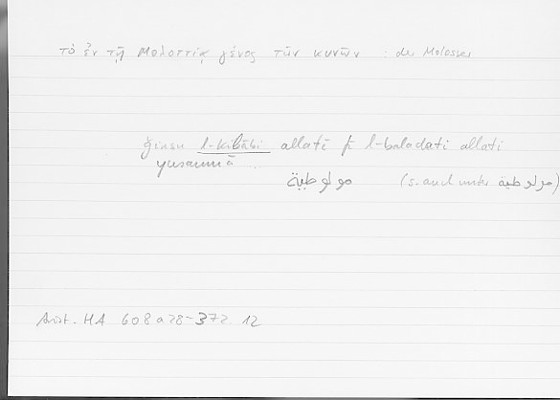 τὸ ἐν τῇ Μολοττίᾳ γένος τῶν κυνῶν : der Molosser
ǧinsu l-kilābi allatī fī l-baladati allatī
yusammā ...
مولوطية (s. auch unter مولوطية)
Arist. HA 608a28-372.12